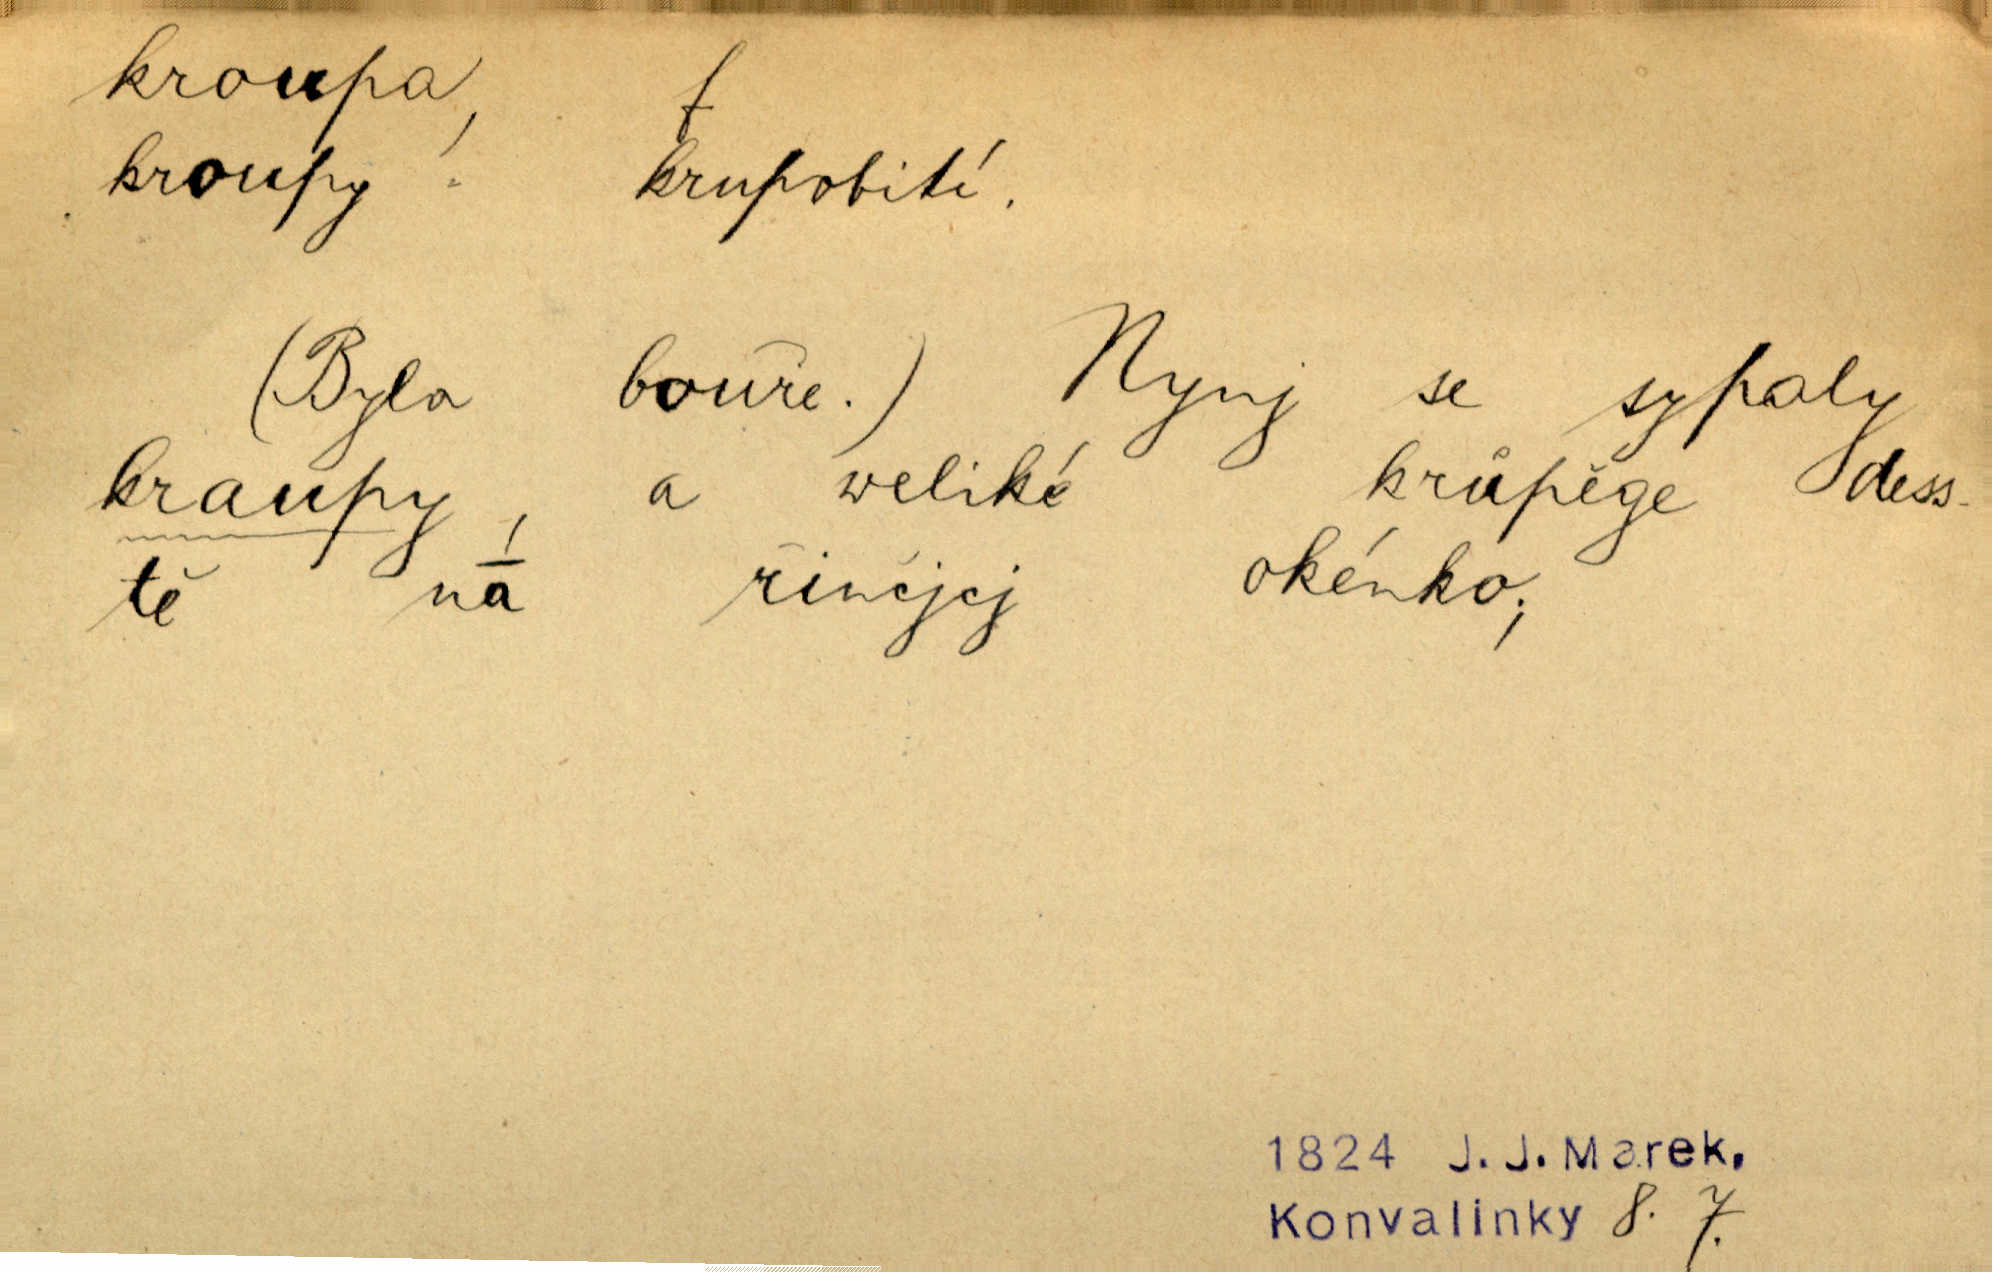 kroupa, f
kroupy! krupobití.
(Byla bouře.) Nynj se sypaly
kraupy, a weliké krůpěge dess-
tě na řinčjcj okénko;
1824 J. J. Marek,
Konvalinky 8. 7.